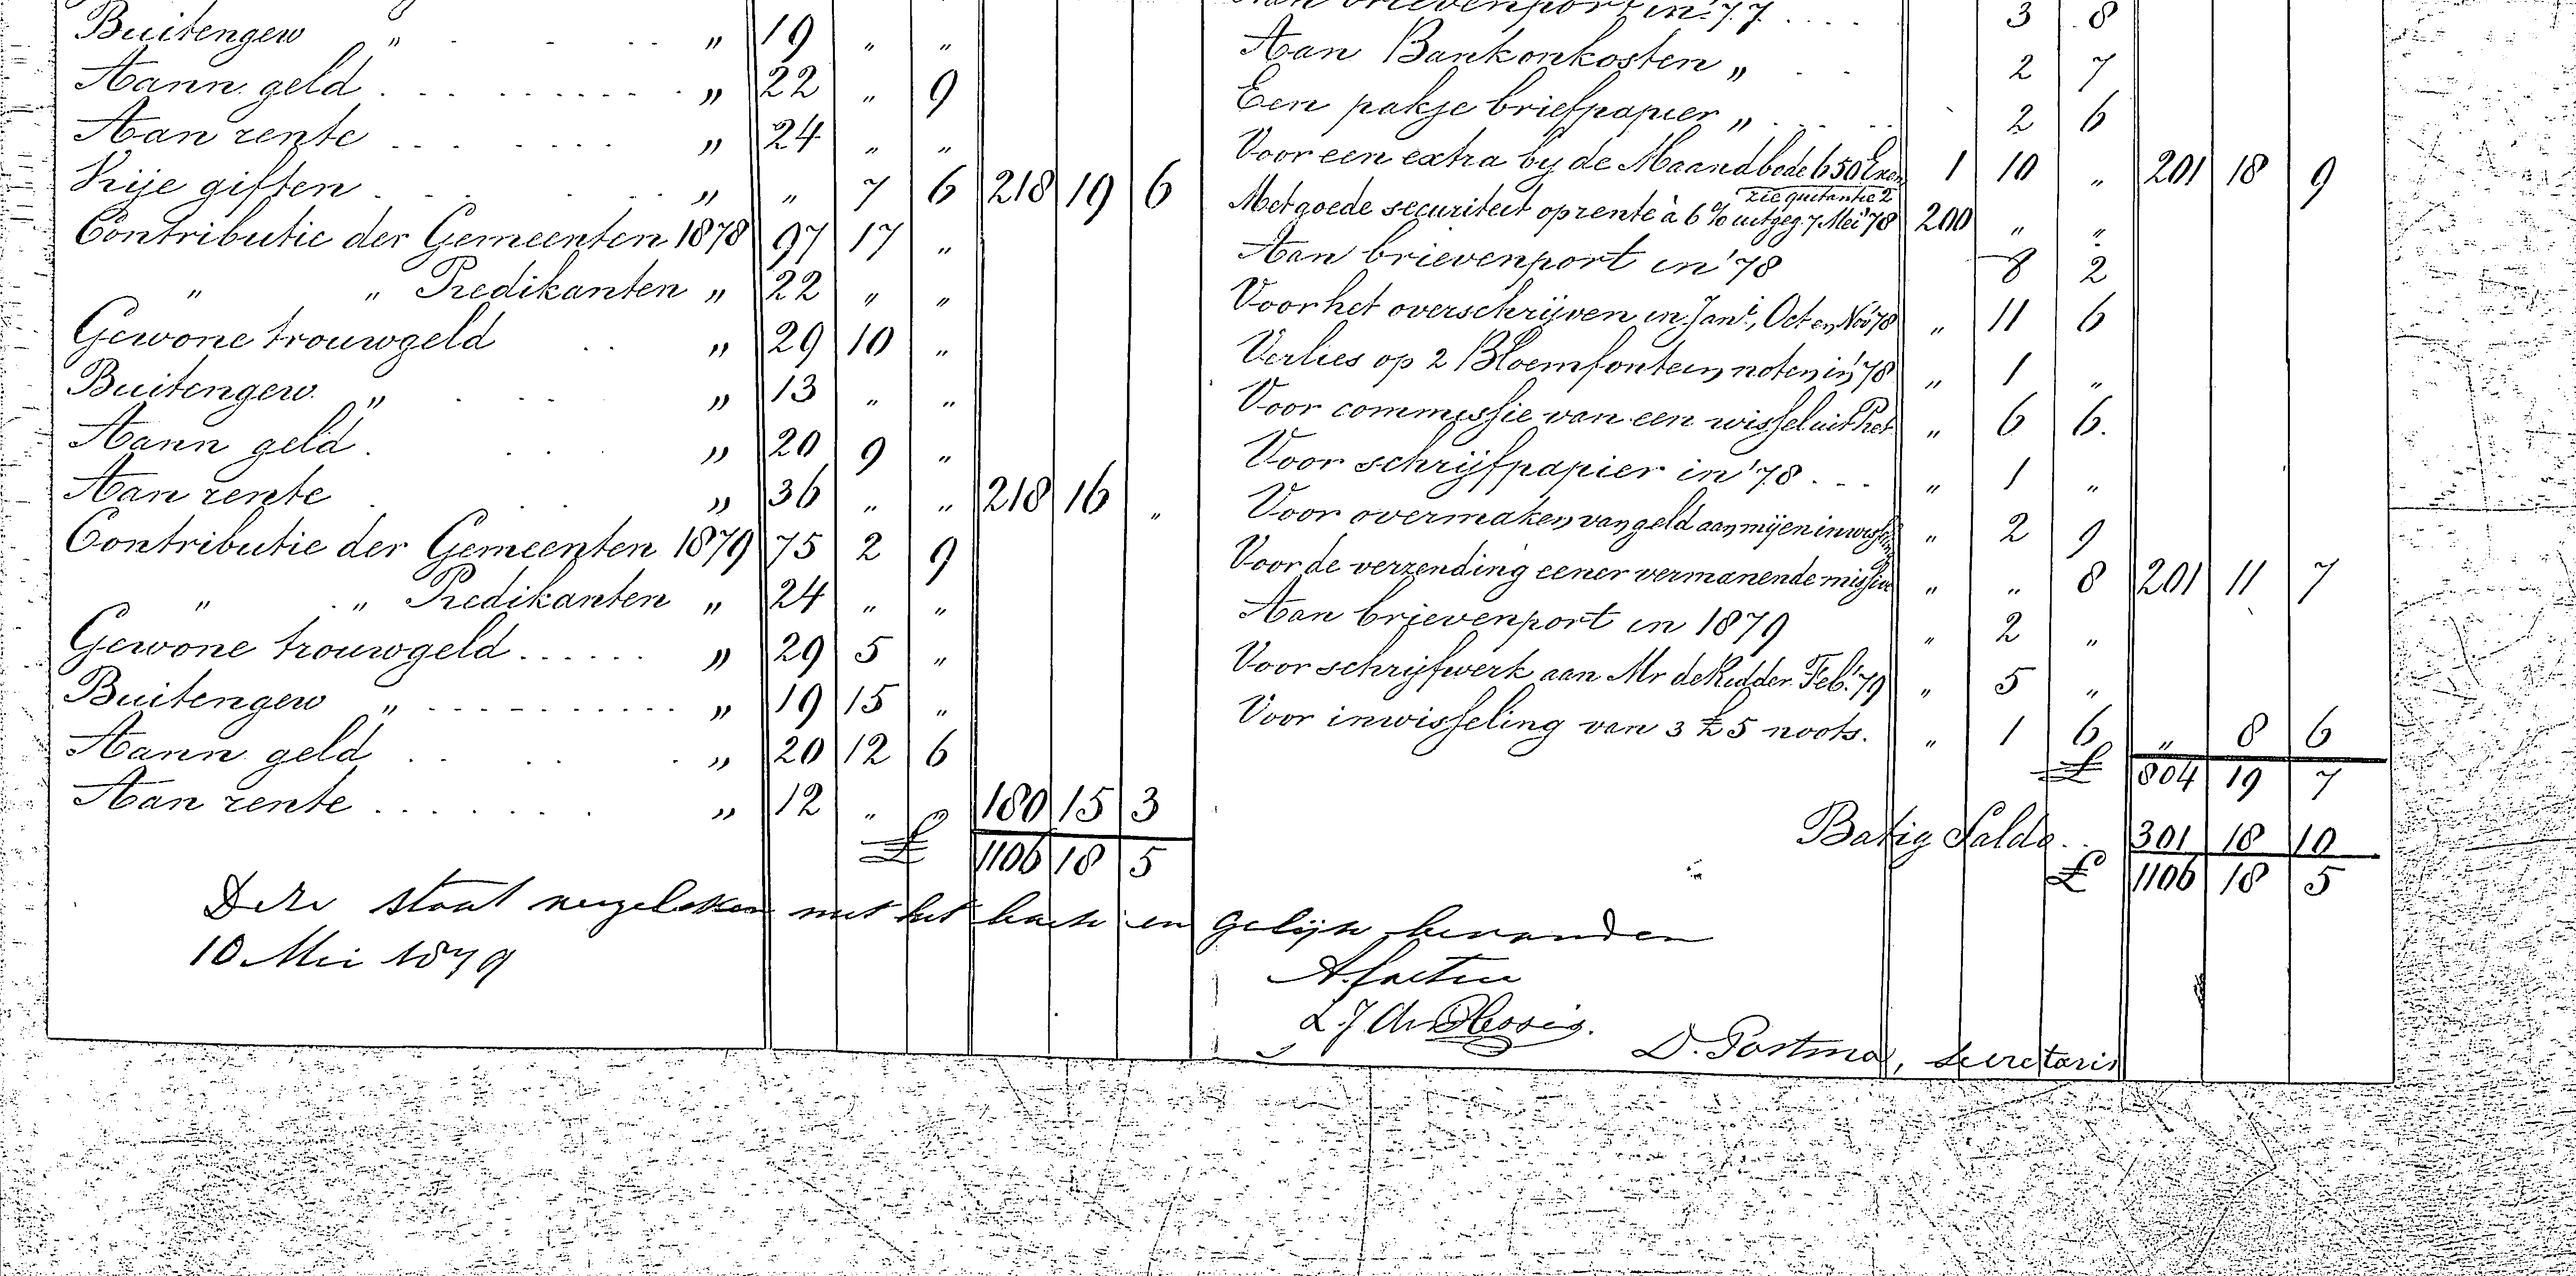 Buitengew " . . . . " 19 " "
Aann. geld . . . . . . . . . " 22 " 9
Aan rente . . . . . . . " 24 " "
Vrije giften . . . . . " " 7 6 218 19 6
Contributie der Gemeenten 1878 97 17 "
" " Predikanten " 22 " "
Gewone trouwgeld . . " 29 10 "
Buitengew. " . . . " 13 " "
Aann geld . . . . " 20 9 "
Aan rente . . . " 36 " " 218 16 "
Contributie der Gemeenten 1879 75 2 9
" " Predikanten " 24 " "
Gewone trouwgeld . . . . . . " 29 5 "
Buitengew " - - - - - - - - - - " 19 15 "
Aann geld . . . . . " 20 12 6
Aan rente . . . . . . . . " 12 " " 180 15 3
£ 1106 18 5
Aan brievenport in '77 . . . . 3 8
Aan Bankonkosten " . . 2 7
Een pakje briefpapier " . . . . 2 6
Voor een extra by de Maandbode 650 Exem 1 10 " 201 18 9
zie quitantie 2
Met goede securiteit op rente à 6 % uitgeg. 7 Mei '78 200 " "
Aan brievenport in '78 8 2
Voor het overschrijven in Jan', Oct en Nov '78 " 11 6
Verlies op 2 Bloemfontein noten in '78 " 1 "
Voor commissie van een wissel uit Pret " 6 6.
Voor schrijfpapier in '78 . . . " 1 "
Voor overmaken van geld aan mij en inwissel " 2 9
Voor de verzending eener vermanende missive " " 8 201 11 7
Aan brievenport in 1879 " 2 "
Voor schrijfwerk aan Mr de Ridder Feb. '79 " 5 "
Voor inwisseling van 3 £5 noots. " 1 6 " 8 6
£ 804 19 7
Batig Saldo . . 301 18 10
£ 1106 18 5
Deze staat vergeleken met het boek en gelijk bevonden
10 Mei 1879
L. J. du Plessis.
D. Postma, Secretaris